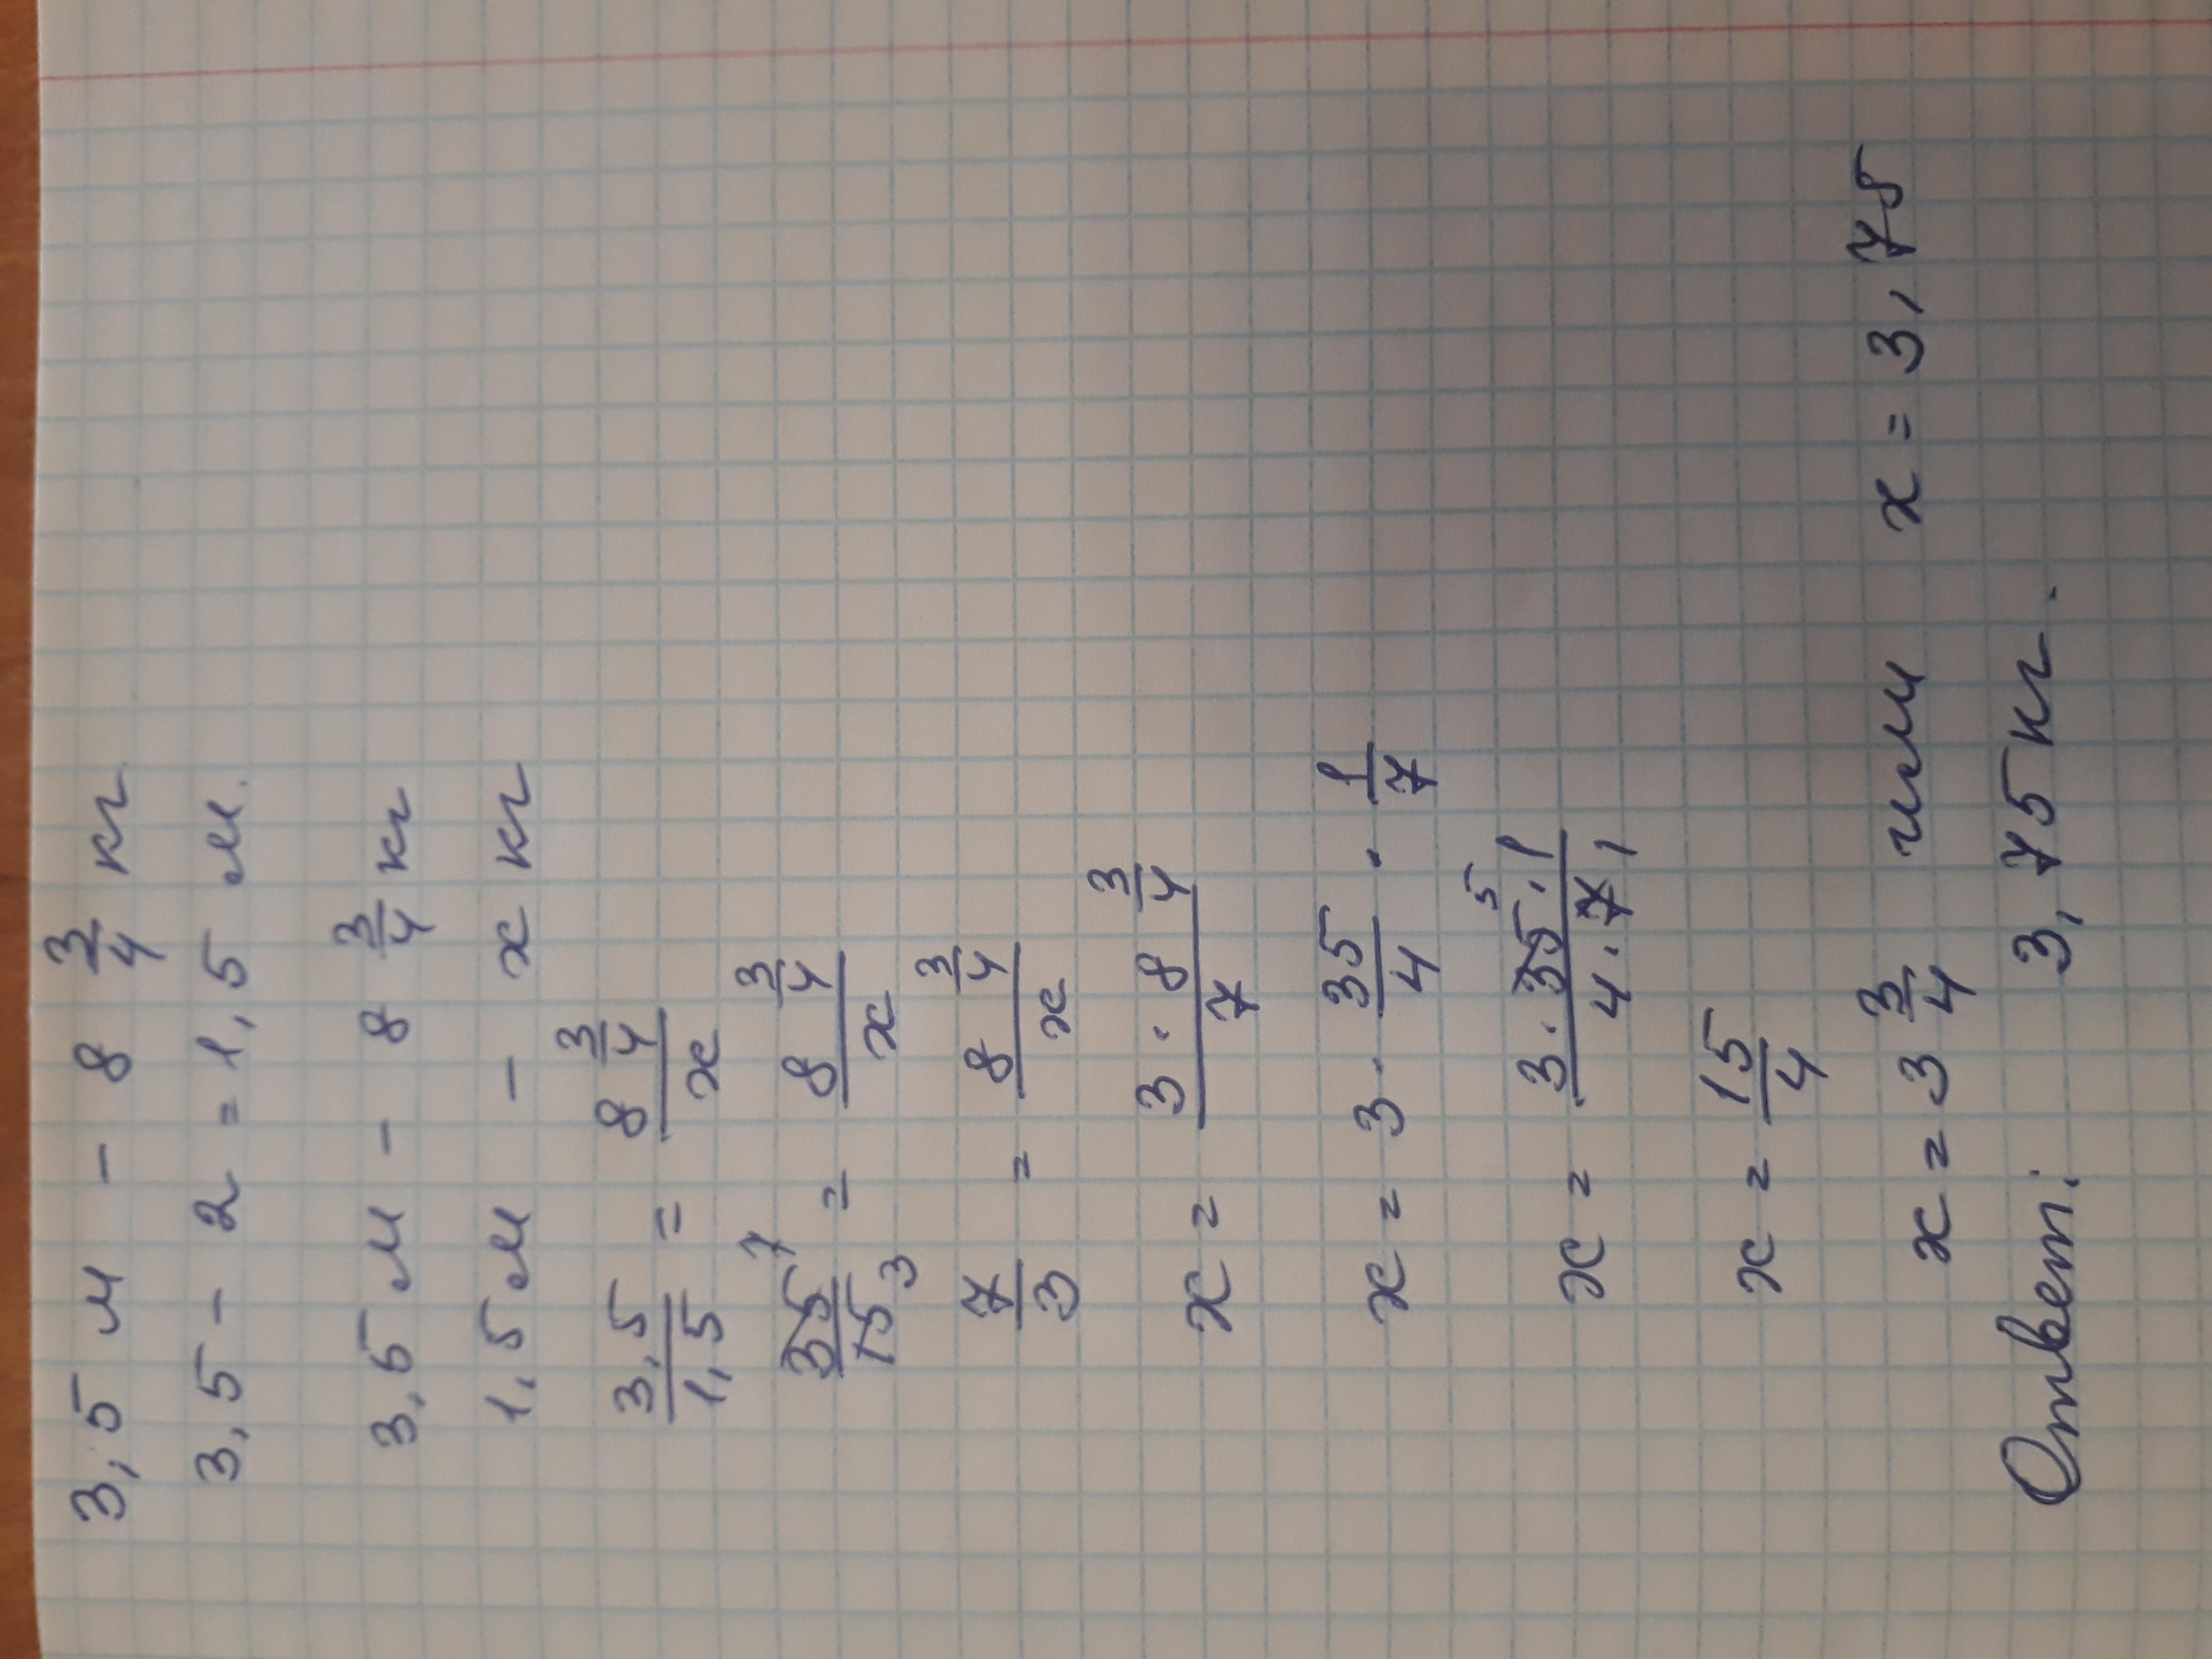 3,5 м - 8 3/4 кг
3,5 - 2 = 1,5 м.
3,5 м - 8 3/4 кг
1,5 м - x кг
3,5/1,5 = 8 3/4 / x
35 7 / 15 3 = 8 3/4 / x
7/3 = 8 3/4 / x
x = 3 · 8 3/4 / 7
x = 3 · 35/4 · 1/7
x = 3 · 35 5 · 1 / 4 · 7 1
x = 15/4
x = 3 3/4 или x = 3,75
Ответ: 3,75 кг.